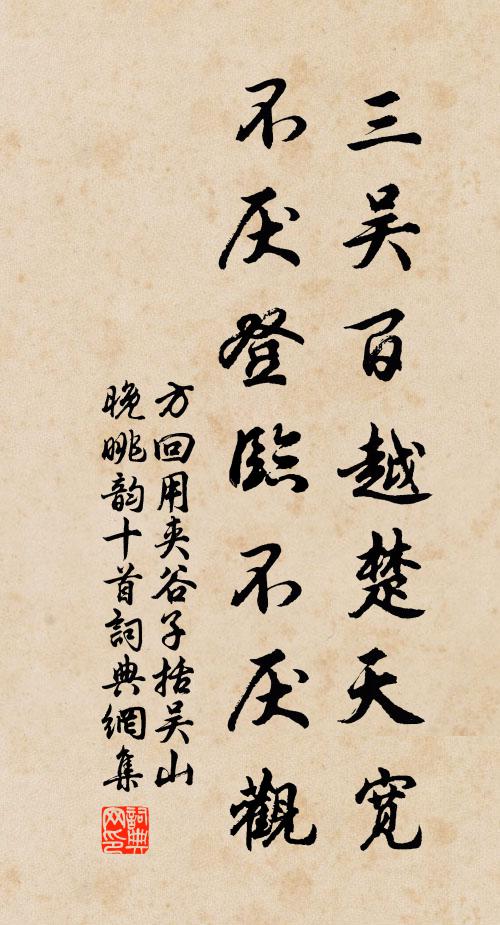 三吴百越楚天寬
不厌登臨不厌觀
方回用夹谷子括吴山
晚眺韵十首詞典網集
詞典网印